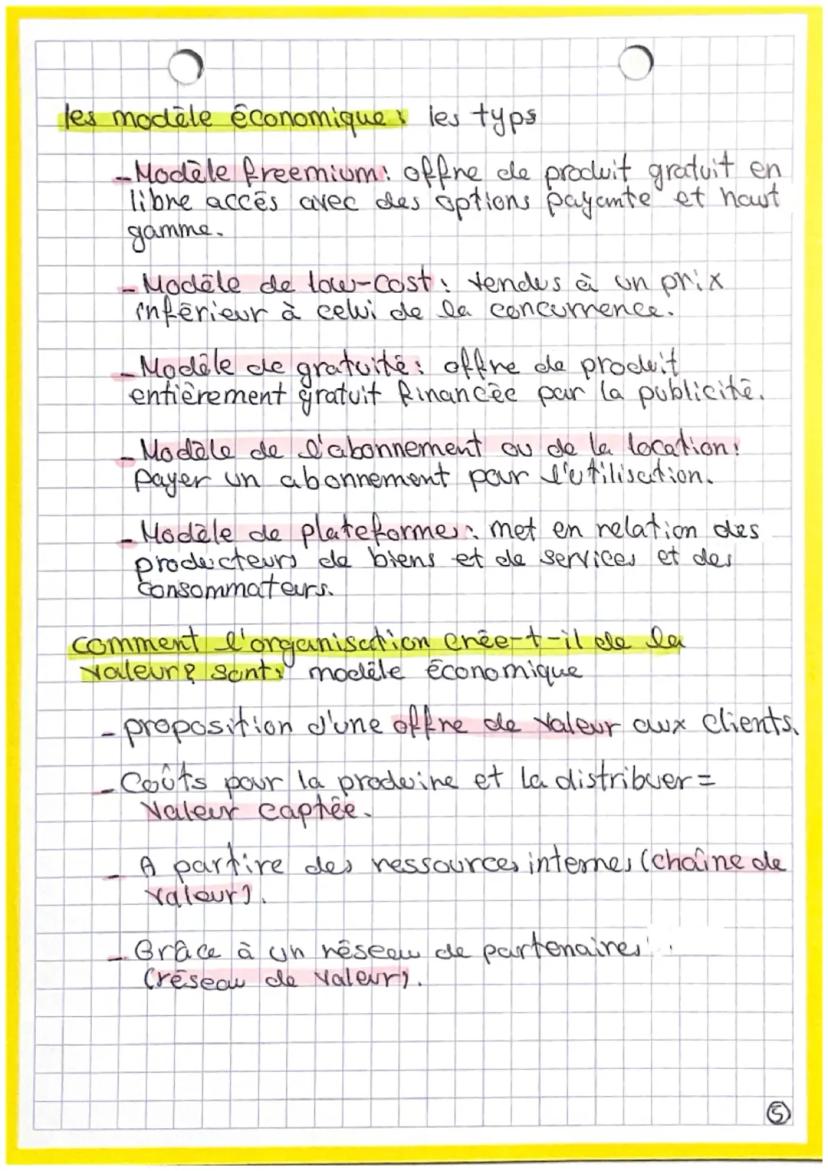 les modèle économique : les typs
- Modèle freemium : offre de produit gratuit en
libre accés avec des options payante et haut
gamme.
- Modèle de low-cost : vendus à un prix
inférieur à celui de la concurrence.
- Modèle de gratuité : offre de produit
entièrement gratuit financée par la publicité.
- Modèle de l'abonnement ou de la location :
payer un abonnement pour l'utilisation.
- Modèle de plateformes : met en relation des
producteurs de biens et de services et des
consommateurs.
comment l'organisation crée-t-il de la
valeur ? sont : modèle économique
- proposition d'une offre de valeur aux clients.
- Coûts pour la produire et la distribuer =
valeur captée.
- A partire des ressources internes (chaîne de
valeur).
- Grâce à un réseau de partenaires.
(réseau de valeur).
5